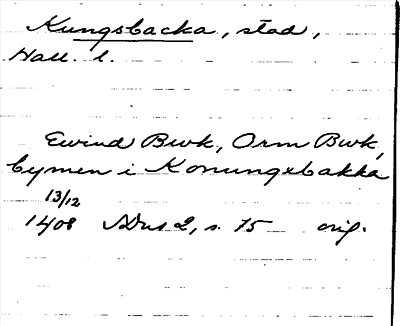 Kungsbacka, stad,
Hall. l.
Ewind Bwk, Orm Bwk,
bymen i Konungxbakka
13/12
1408 NDns 2, s. 15 orig.